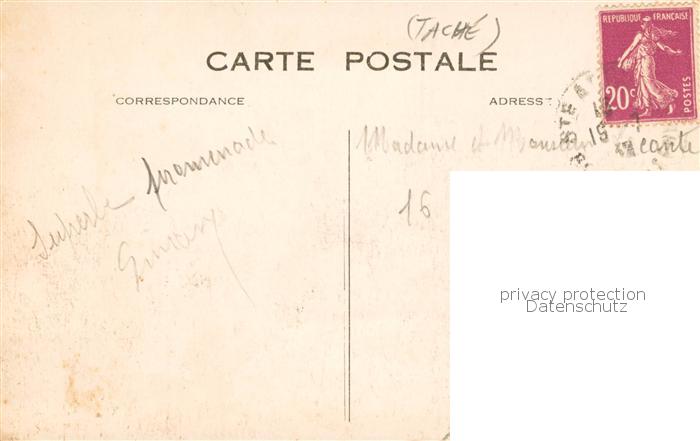 (TACHÉ)
CARTE POSTALE
RÉPUBLIQUE FRANÇAISE
20c
POSTES
CORRESPONDANCE
ADRESSE
Madame et Monsieur
16
Superbe promenade
privacy protection
Datenschutz